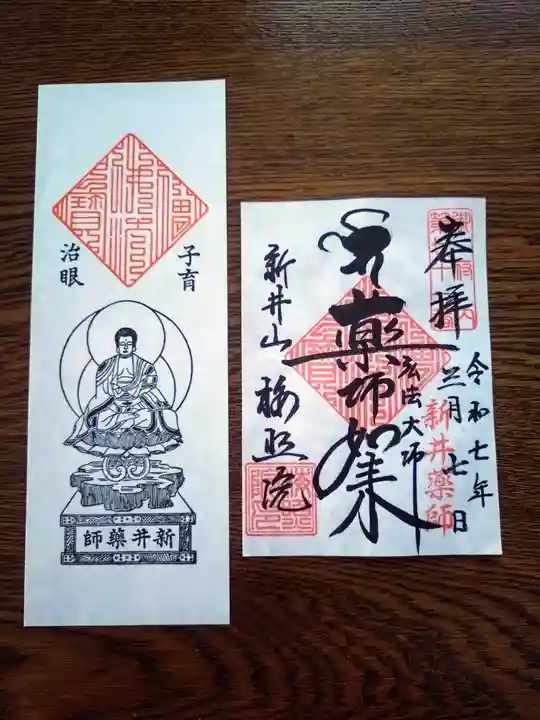 子育
治眼
新井藥師
奉拝
令和七年
三月七日
新井薬師
藥師如来
弘法大師
新井山
梅照院